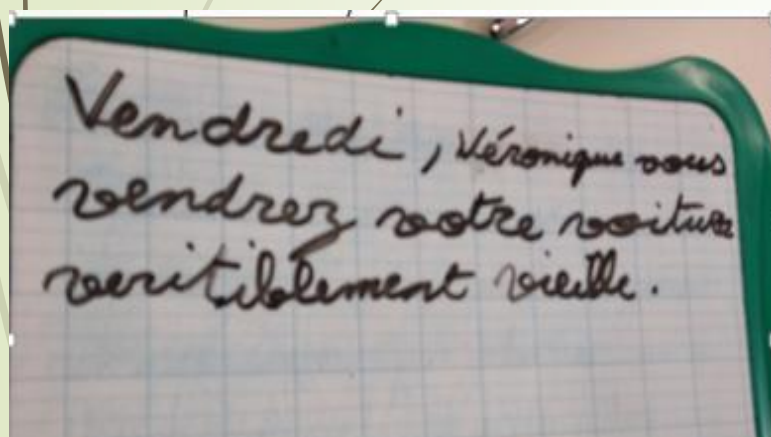 Vendredi, Véronique vous
vendrez votre voiture
veritiblement vieille.